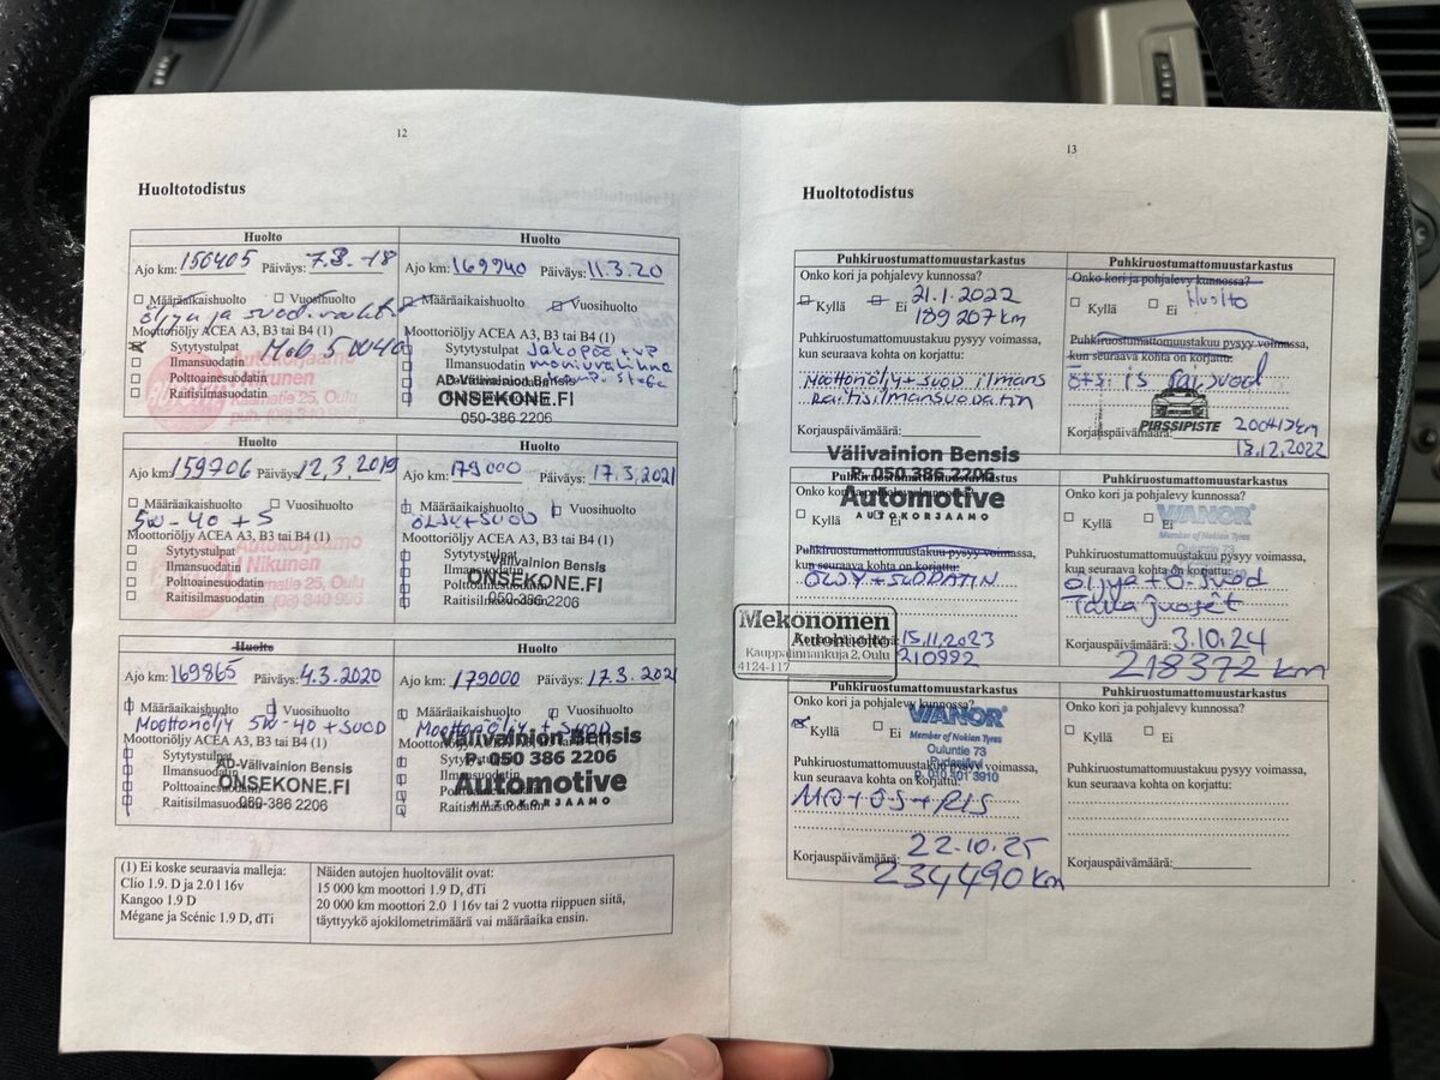 12
Huoltotodistus
Huolto
Ajo km: 156405 Päiväys: 7.3.-18
Määräaikaishuolto Vuosihuolto
öljy ja suod.
Moottoriöljy ACEA A3, B3 tai B4 (1)
Sytytystulpat Mob 5W40
Ilmansuodatin
Polttoainesuodatin
Raitisilmasuodatin
Autokorjaamo
Nikunen
25, Oulu
puh. (08) 340 996
Huolto
Ajo km: 169940 Päiväys: 11.3.20
Määräaikaishuolto Vuosihuolto
Moottoriöljy ACEA A3, B3 tai B4 (1)
Sytytystulpat Jakopää + vp
Ilmansuodatin moniurahihna
AD-Välivainion Bensis
ONSEKONE.FI
050-386 2206
Huolto
Ajo km: 159706 Päiväys: 12.3.2019
Määräaikaishuolto Vuosihuolto
5W-40 + S
Moottoriöljy ACEA A3, B3 tai B4 (1)
Sytytystulpat
Ilmansuodatin
Polttoainesuodatin
Raitisilmasuodatin
Autokorjaamo
Nikunen
25, Oulu
puh. (08) 340 996
Huolto
Ajo km: 179000 Päiväys: 17.3.2021
Määräaikaishuolto Vuosihuolto
ÖLJY+SUOD
Moottoriöljy ACEA A3, B3 tai B4 (1)
Sytytystulpat
Ilmansuodatin
Polttoainesuodatin
Raitisilmasuodatin
Välivainion Bensis
ONSEKONE.FI
050-386 2206
Huolto
Ajo km: 169865 Päiväys: 4.3.2020
Määräaikaishuolto Vuosihuolto
Moottoriöljy 5W-40 + SUOD
Moottoriöljy ACEA A3, B3 tai B4 (1)
Sytytystulpat
Ilmansuodatin
Polttoainesuodatin
Raitisilmasuodatin
AD-Välivainion Bensis
ONSEKONE.FI
050-386 2206
Huolto
Ajo km: 179000 Päiväys: 17.3.2021
Määräaikaishuolto Vuosihuolto
Moottoriöljy + suod
Moottoriöljy ACEA A3, B3 tai B4 (1)
Raitisilmasuodatin
Välivainion Bensis
P. 050 386 2206
Automotive
AUTOKORJAAMO
(1) Ei koske seuraavia malleja:
Clio 1.9. D ja 2.0 l 16v
Kangoo 1.9 D
Mégane ja Scénic 1.9 D, dTi
Näiden autojen huoltovälit ovat:
15 000 km moottori 1.9 D, dTi
20 000 km moottori 2.0 l 16v tai 2 vuotta riippuen siitä,
täyttyykö ajokilometrimäärä vai määräaika ensin.
13
Huoltotodistus
Puhkiruostumattomuustarkastus
Onko kori ja pohjalevy kunnossa?
Kyllä Ei 21.1.2022
189 207 km
Puhkiruostumattomuustakuu pysyy voimassa,
kun seuraava kohta on korjattu:
Moottoriöljy + SUOD ilmans
Raitisilmansuodatin
Korjauspäivämäärä:
Välivainion Bensis
P. 050 386 2206
Automotive
AUTOKORJAAMO
Puhkiruostumattomuustarkastus
Onko kori ja pohjalevy kunnossa?
Kyllä Ei Huolto
Puhkiruostumattomuustakuu pysyy voimassa,
kun seuraava kohta on korjattu:
PIRSSIPISTE
Korjauspäivämäärä:
13.12.2022
Puhkiruostumattomuustarkastus
Kyllä Ei
Puhkiruostumattomuustakuu pysyy voimassa,
kun seuraava kohta on korjattu:
ÖLJY + SUODATIN
Korjauspäivämäärä: 15.11.2023
210992
Mekonomen
Autohuolto
Kauppalinnankuja 2, Oulu
4124-117
Puhkiruostumattomuustarkastus
Onko kori ja pohjalevy kunnossa?
Kyllä Ei
VIANOR
Member of Nokian Tyres
Ouluntie 73
Puhkiruostumattomuustakuu pysyy voimassa,
kun seuraava kohta on korjattu:
öljyä + ö-suod
Korjauspäivämäärä: 3.10.24
218372 km
Puhkiruostumattomuustarkastus
Onko kori ja pohjalevy kunnossa?
Kyllä Ei
VIANOR
Member of Nokian Tyres
Ouluntie 73
Pudasjärvi
p. 010 401 3910
Puhkiruostumattomuustakuu pysyy voimassa,
kun seuraava kohta on korjattu:
MÖ+ÖS+RIS
Korjauspäivämäärä: 22.10.25
234490 km
Puhkiruostumattomuustarkastus
Onko kori ja pohjalevy kunnossa?
Kyllä Ei
Puhkiruostumattomuustakuu pysyy voimassa,
kun seuraava kohta on korjattu:
Korjauspäivämäärä: